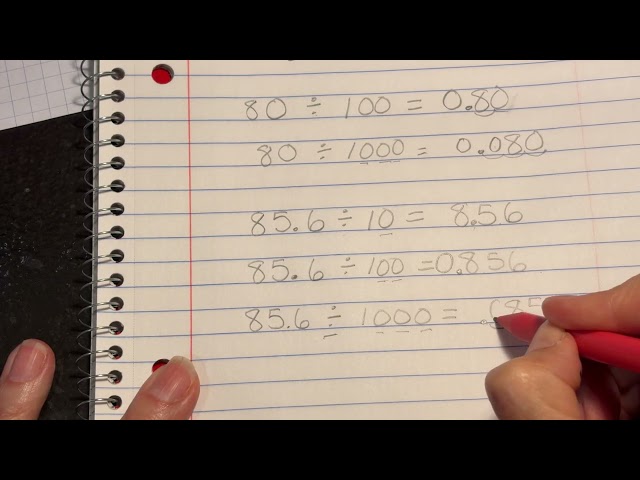 80 ÷ 100 = 0.80
80 ÷ 1000 = 0.080
85.6 ÷ 10 = 8.56
85.6 ÷ 100 = 0.856
85.6 ÷ 1000 = .85